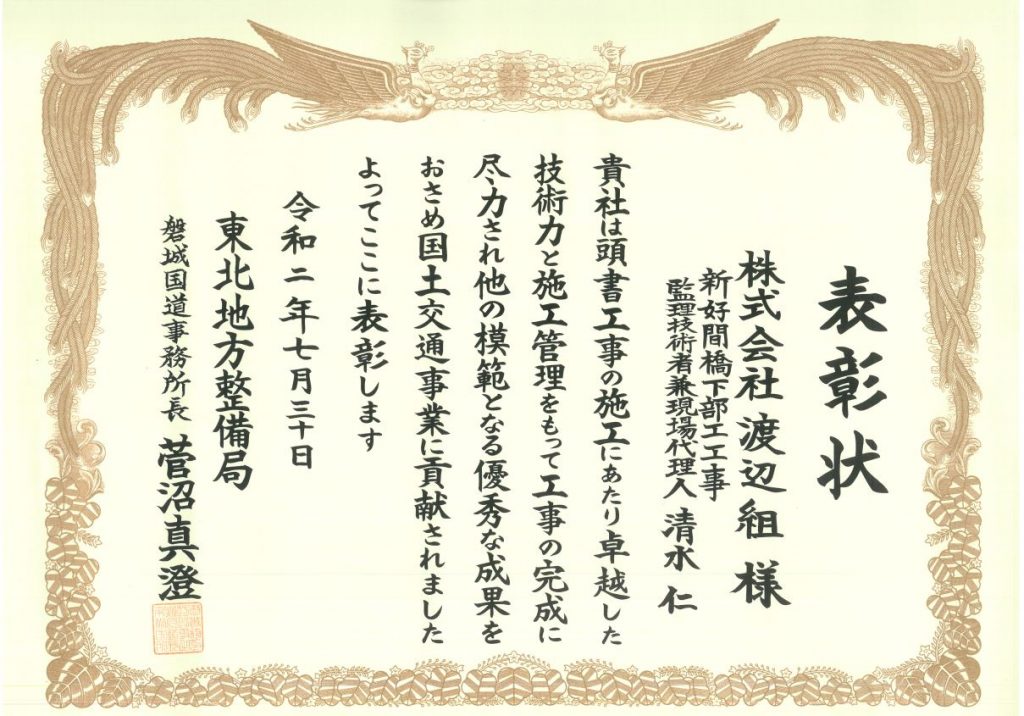 表彰状
株式会社渡辺組 様
新好間橋下部工工事
監理技術者兼現場代理人 清水 仁
貴社は頭書工事の施工にあたり卓越した
技術力と施工管理をもって工事の完成に
尽力され他の模範となる優秀な成果を
おさめ国土交通事業に貢献されました
よってここに表彰します
令和二年七月三十日
東北地方整備局
磐城国道事務所長 菅沼真澄